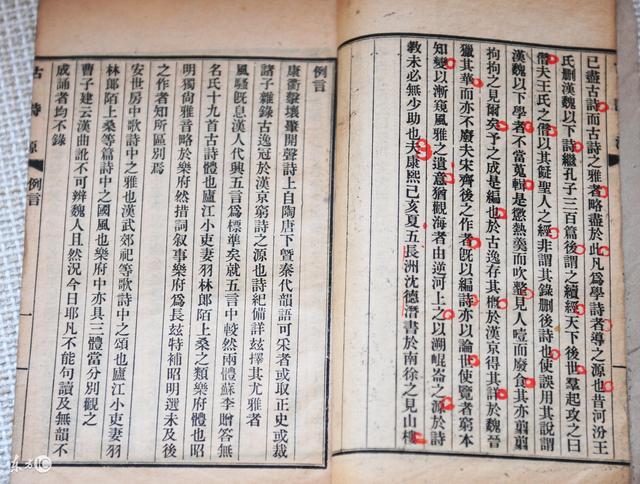 已盡古詩而古詩之雅者略盡於此凡爲學詩者導之源也昔河汾王
氏刪漢魏以下詩繼孔子三百篇後謂之續經天下後世羣起攻之曰
僭夫王氏之僭以其擬聖人之經非謂其錄刪後詩也使誤用其說謂
漢魏以下學者不當蒐輯是懲熱羹而吹虀見人噎而廢食其亦翦翦
拘拘之見爾矣予之成是編也於古逸存其槪於漢京得其詳於魏晉
獵其華而亦不廢夫宋齊後之作者旣以編詩亦以論世使覽者窮本
知變以漸窺風雅之遺意猶觀海者由逆河上之以溯崐崙之源於詩
敎未必無少助也夫康熙己亥夏五長洲沈德潛書於南徐之見山樓
例言
康衢擊壤肇開聲詩上自陶唐下曁秦代韻語可采者或取正史或裁
諸子雜錄古逸冠於漢京窮詩之源也詩紀備詳玆擇其尤雅者
風騷旣息漢人代興五言爲標準矣就五言中較然兩體蘇李贈答無
名氏十九首古詩體也廬江小吏妻羽林郎陌上桑之類樂府體也昭
明獨尙雅音略於樂府然措詞叙事樂府爲長玆特補昭明選未及後
之作者知所區別焉
安世房中歌詩中之雅也漢武郊祀等歌詩中之頌也廬江小吏妻羽
林郎陌上桑等篇詩中之國風也樂府中亦具三體當分別觀之
曹子建云漢曲訛不可辨魏人且然況今日耶凡不能句讀及無韻不
成誦者均不錄
古詩源 例言 一